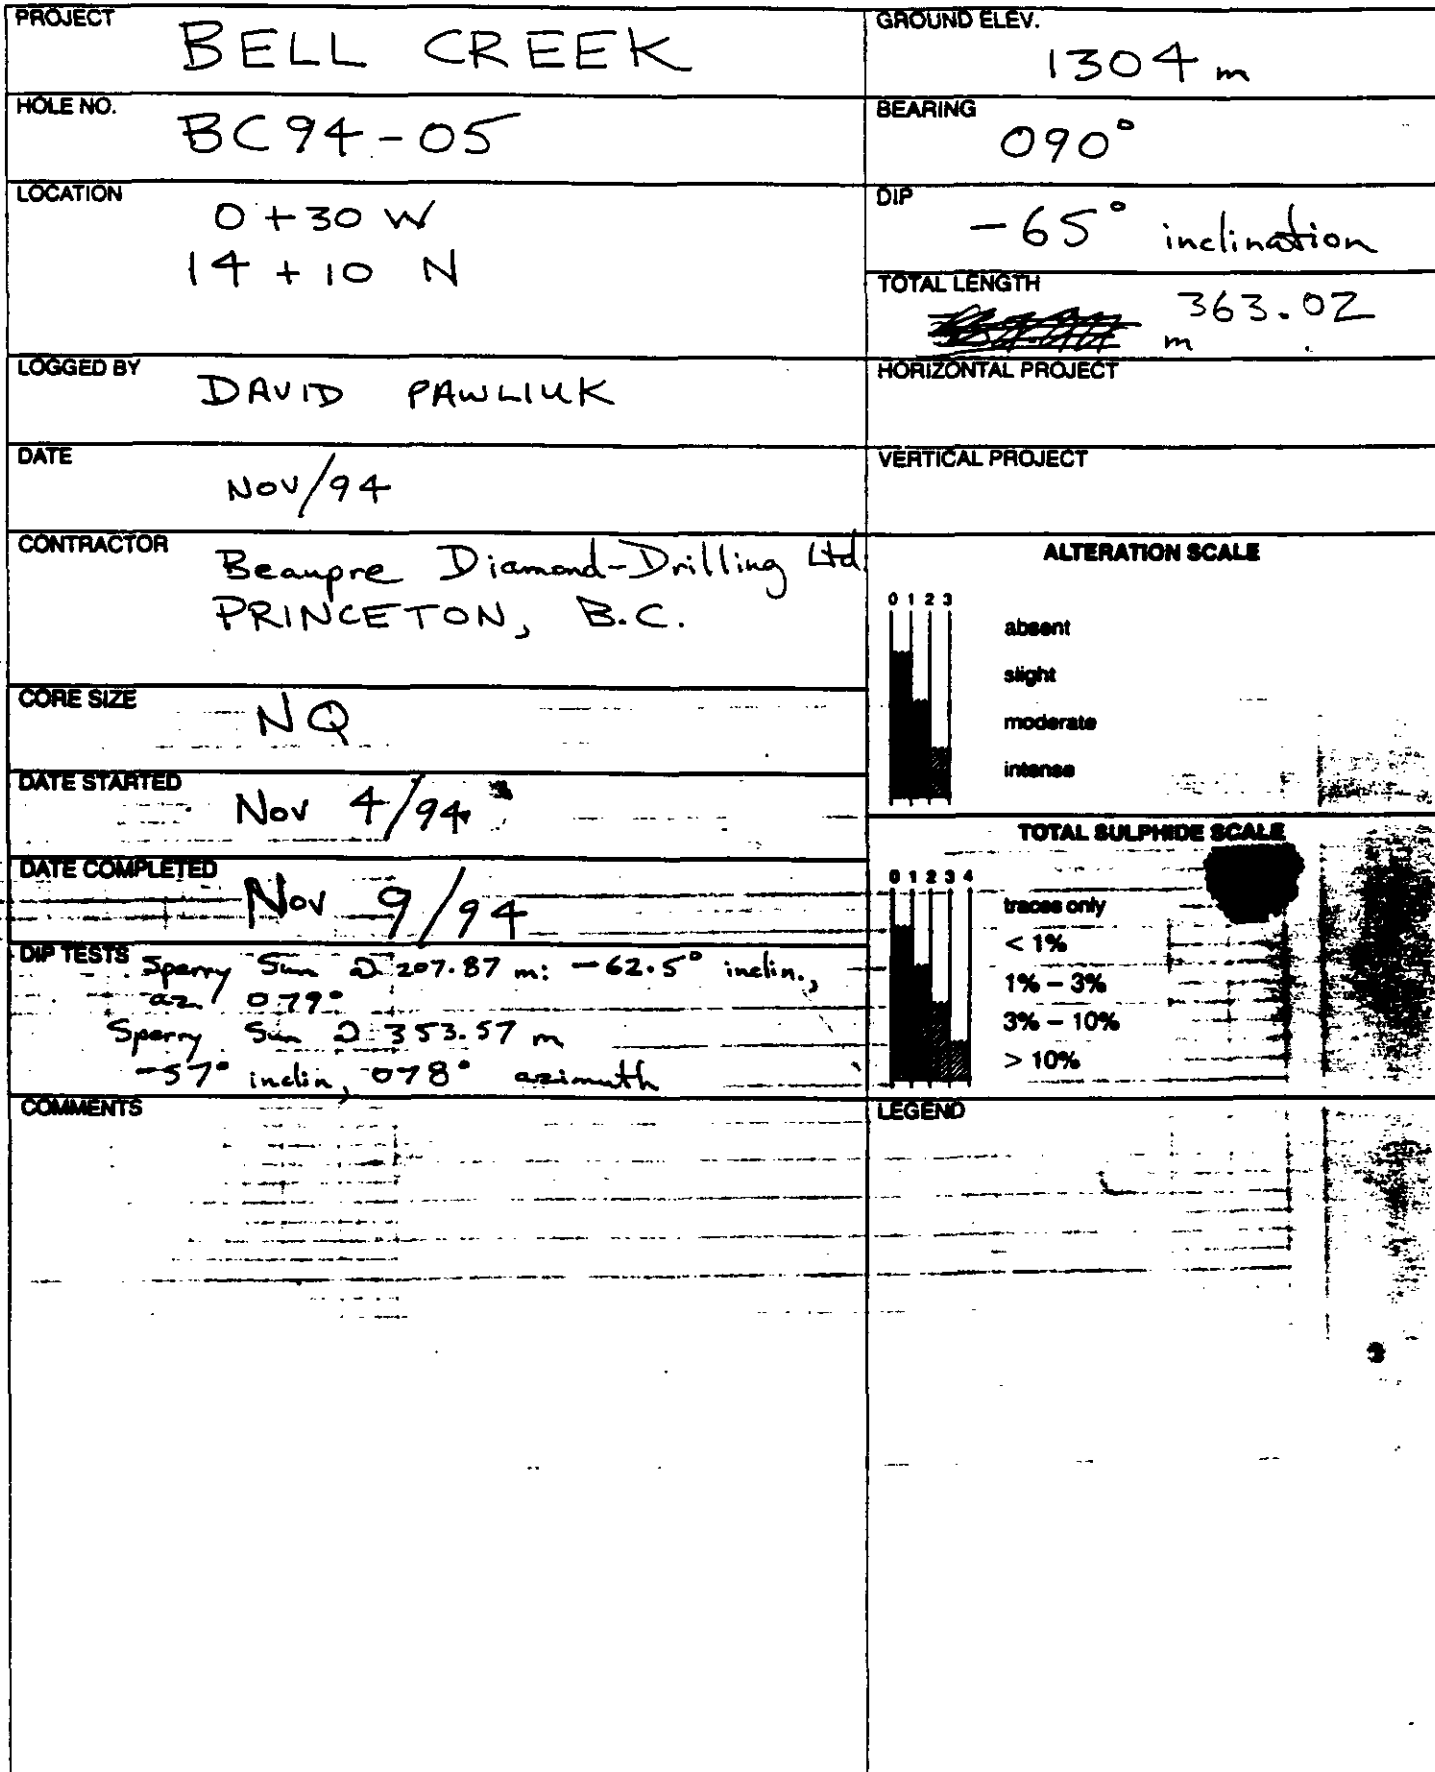 PROJECT
BELL CREEK
HOLE NO.
BC94-05
LOCATION
0+30 W
14+10 N
LOGGED BY
DAVID PAWLIUK
DATE
Nov/94
CONTRACTOR
Beaupre Diamond-Drilling Ltd.
PRINCETON, B.C.
CORE SIZE
NQ
DATE STARTED
Nov 4/94
DATE COMPLETED
Nov 9/94
DIP TESTS
Sperry Sun @ 207.87 m: -62.5° inclin.,
az 079°
Sperry Sun @ 353.57 m
-57° inclin, 078° azimuth
COMMENTS
GROUND ELEV.
1304 m
BEARING
090°
DIP
-65° inclination
TOTAL LENGTH
363.02
m
HORIZONTAL PROJECT
VERTICAL PROJECT
ALTERATION SCALE
0 1 2 3
absent
slight
moderate
intense
TOTAL SULPHIDE SCALE
0 1 2 3 4
traces only
< 1%
1% – 3%
3% – 10%
> 10%
LEGEND